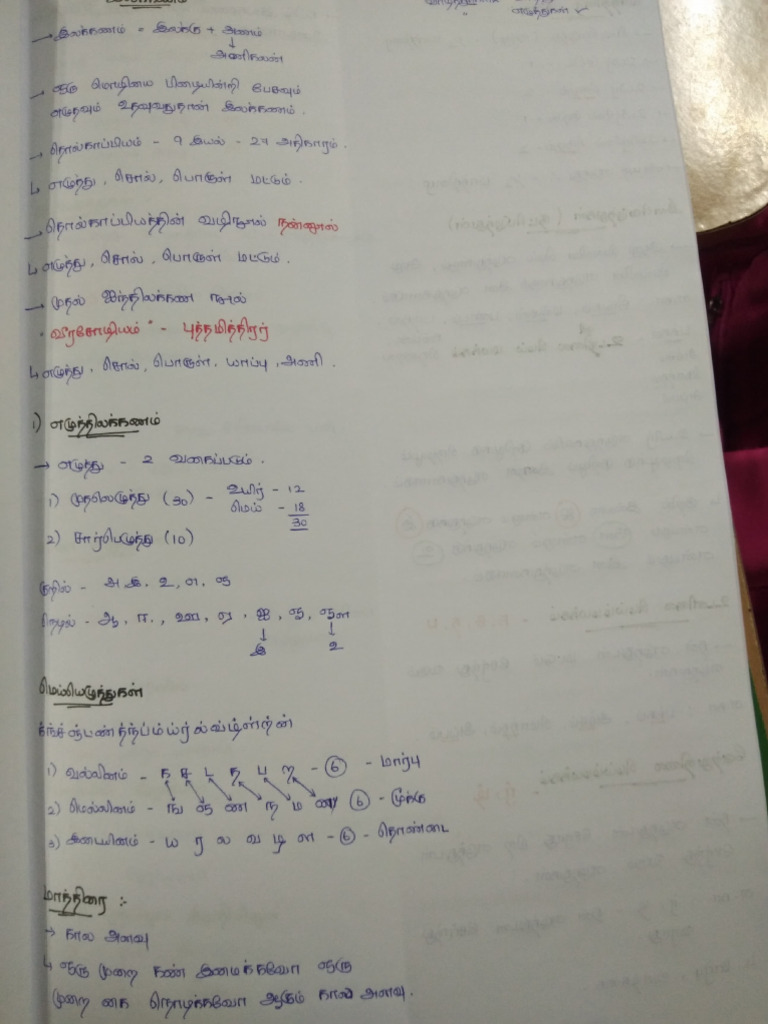 எழுத்துகள் ✓
→ இலக்கணம் = இலக்கு + அணம்
↓
அணிகலன்
→ ஒரு மொழியை பிழையின்றி பேசவும்
எழுதவும் உதவுவதுதான் இலக்கணம்.
→ தொல்காப்பியம் - 9 இயல் - 27 அதிகாரம்.
↳ எழுத்து, சொல், பொருள் மட்டும்.
→ தொல்காப்பியத்தின் வழிநூல் நன்னூல்
↳ எழுத்து, சொல், பொருள் மட்டும்.
→ முதல் ஐந்திலக்கண நூல்
"வீரசோழியம்" - புத்தமித்திரர்
↳ எழுத்து, சொல், பொருள், யாப்பு, அணி.
1) எழுத்திலக்கணம்
→ எழுத்து - 2 வகைப்படும்.
1) முதலெழுத்து (30) - உயிர் - 12
மெய் - 18
30
2) சார்பெழுத்து (10)
குறில் - அ இ, உ, எ, ஒ
நெடில் - ஆ, ஈ, ஊ, ஏ, ஐ, ஓ, ஔ
↓ ↓
இ உ
மெய்யெழுத்துகள்
க்ங்ச்ஞ்ட்ண்த்ந்ப்ம்ய்ர்ல்வ்ழ்ள்ற்ன்
1) வல்லினம் - க ச ட த ப ற - 6 - மார்பு
2) மெல்லினம் - ங் ஞ ண ந ம ன 6 - மூக்கு
3) இடையினம் - ய ர ல வ ழ ள - 6 - தொண்டை
மாத்திரை :-
→ கால அளவு
↳ ஒரு முறை கண் இமைக்கவோ ஒரு
முறை கை நொடிக்கவோ ஆகும் கால அளவு.